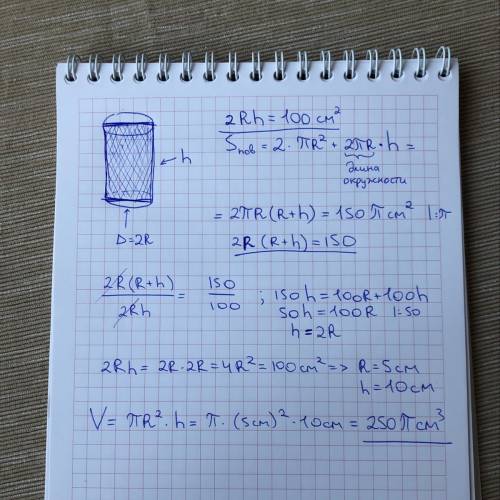 2Rh = 100 см²
h
Sпов = 2 · πR² + 2πR · h =
длина
окружности
D=2R
= 2πR (R+h) = 150 π см² |:π
2R (R+h) = 150
2R(R+h)/2Rh = 150/100 ; 150h = 100R + 100h
50h = 100R |:50
h = 2R
2Rh = 2R · 2R = 4R² = 100 см² => R = 5 см
h = 10 см
V = πR² · h = π · (5 см)² · 10 см = 250 π см³